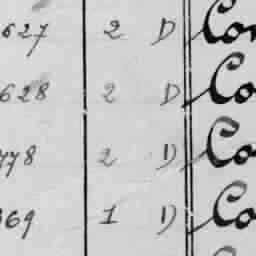 627 2 D Co
628 2 D Co
778 2 D Co
369 1 D Co